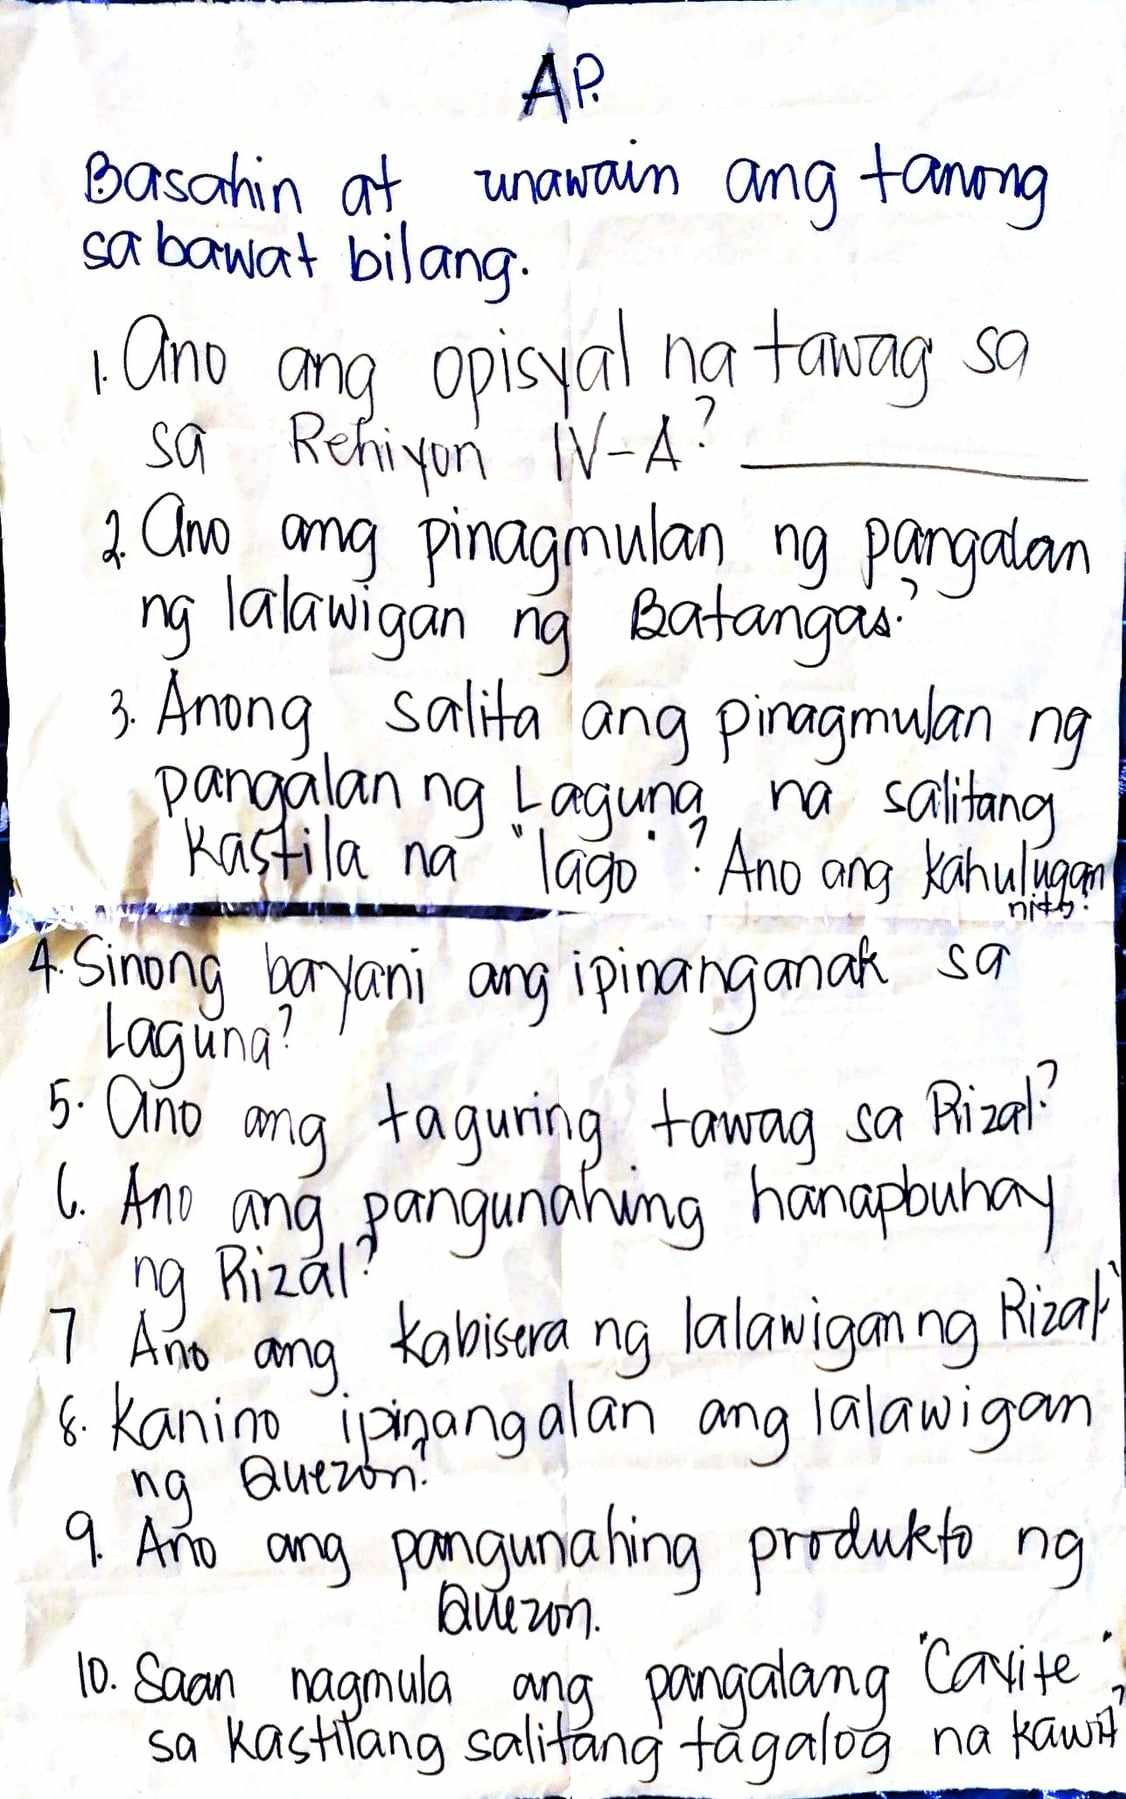 AP.
Basahin at unawain ang tanong
sa bawat bilang.
1. Ano ang opisyal na tawag sa
sa Rehiyon IV-A? __________
2. Ano ang pinagmulan ng pangalan
ng lalawigan ng Batangas?
3. Anong salita ang pinagmulan ng
pangalan ng Laguna na salitang
Kastila na "lago"? Ano ang kahulugan
nito?
4. Sinong bayani ang ipinanganak sa
Laguna?
5. Ano ang taguring tawag sa Rizal?
6. Ano ang pangunahing hanapbuhay
ng Rizal?
7 Ano ang kabisera ng lalawigan ng Rizal?
8. Kanino ipinangalan ang lalawigan
ng Quezon?
9. Ano ang pangunahing produkto ng
Quezon.
10. Saan nagmula ang pangalang "Cavite"
sa kastilang salitang tagalog na kawit?